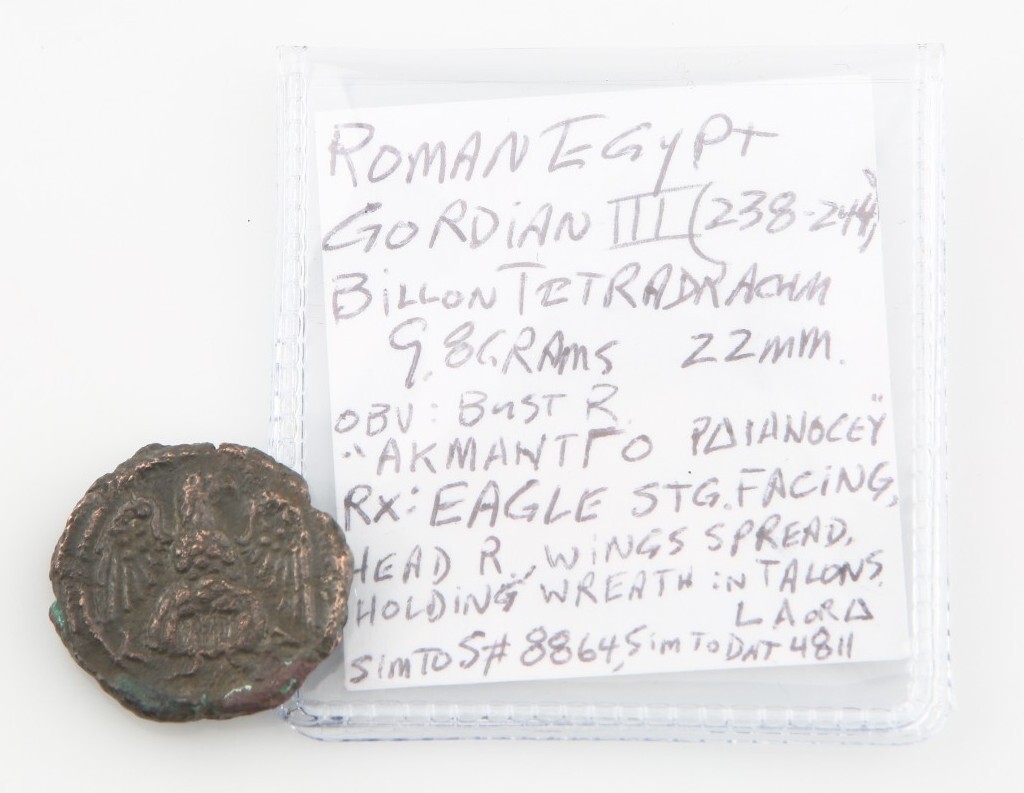 ROMAN EGYPT
GORDIAN III (238-244)
BILLON TETRADRACHM
9.8 GRAMS 22mm.
OBV: BUST R.
"AKMANTΓO PΔIANOCEY"
RX: EAGLE STG. FACING,
HEAD R., WINGS SPREAD,
HOLDING WREATH IN TALONS.
L A OR Δ
SIM TO S# 8864, SIM TO DAT 4811